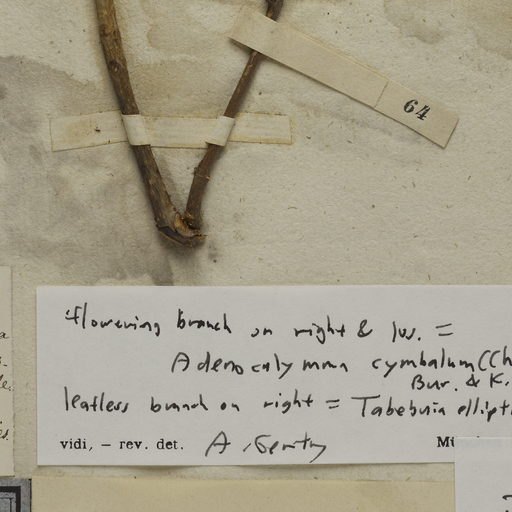 64
flowering branch on right & lvs. =
Adenocalymma cymbalum (Ch
Bur. & K.
leafless branch on right = Tabebuia ellipt
vidi, – rev. det. A. Gentry